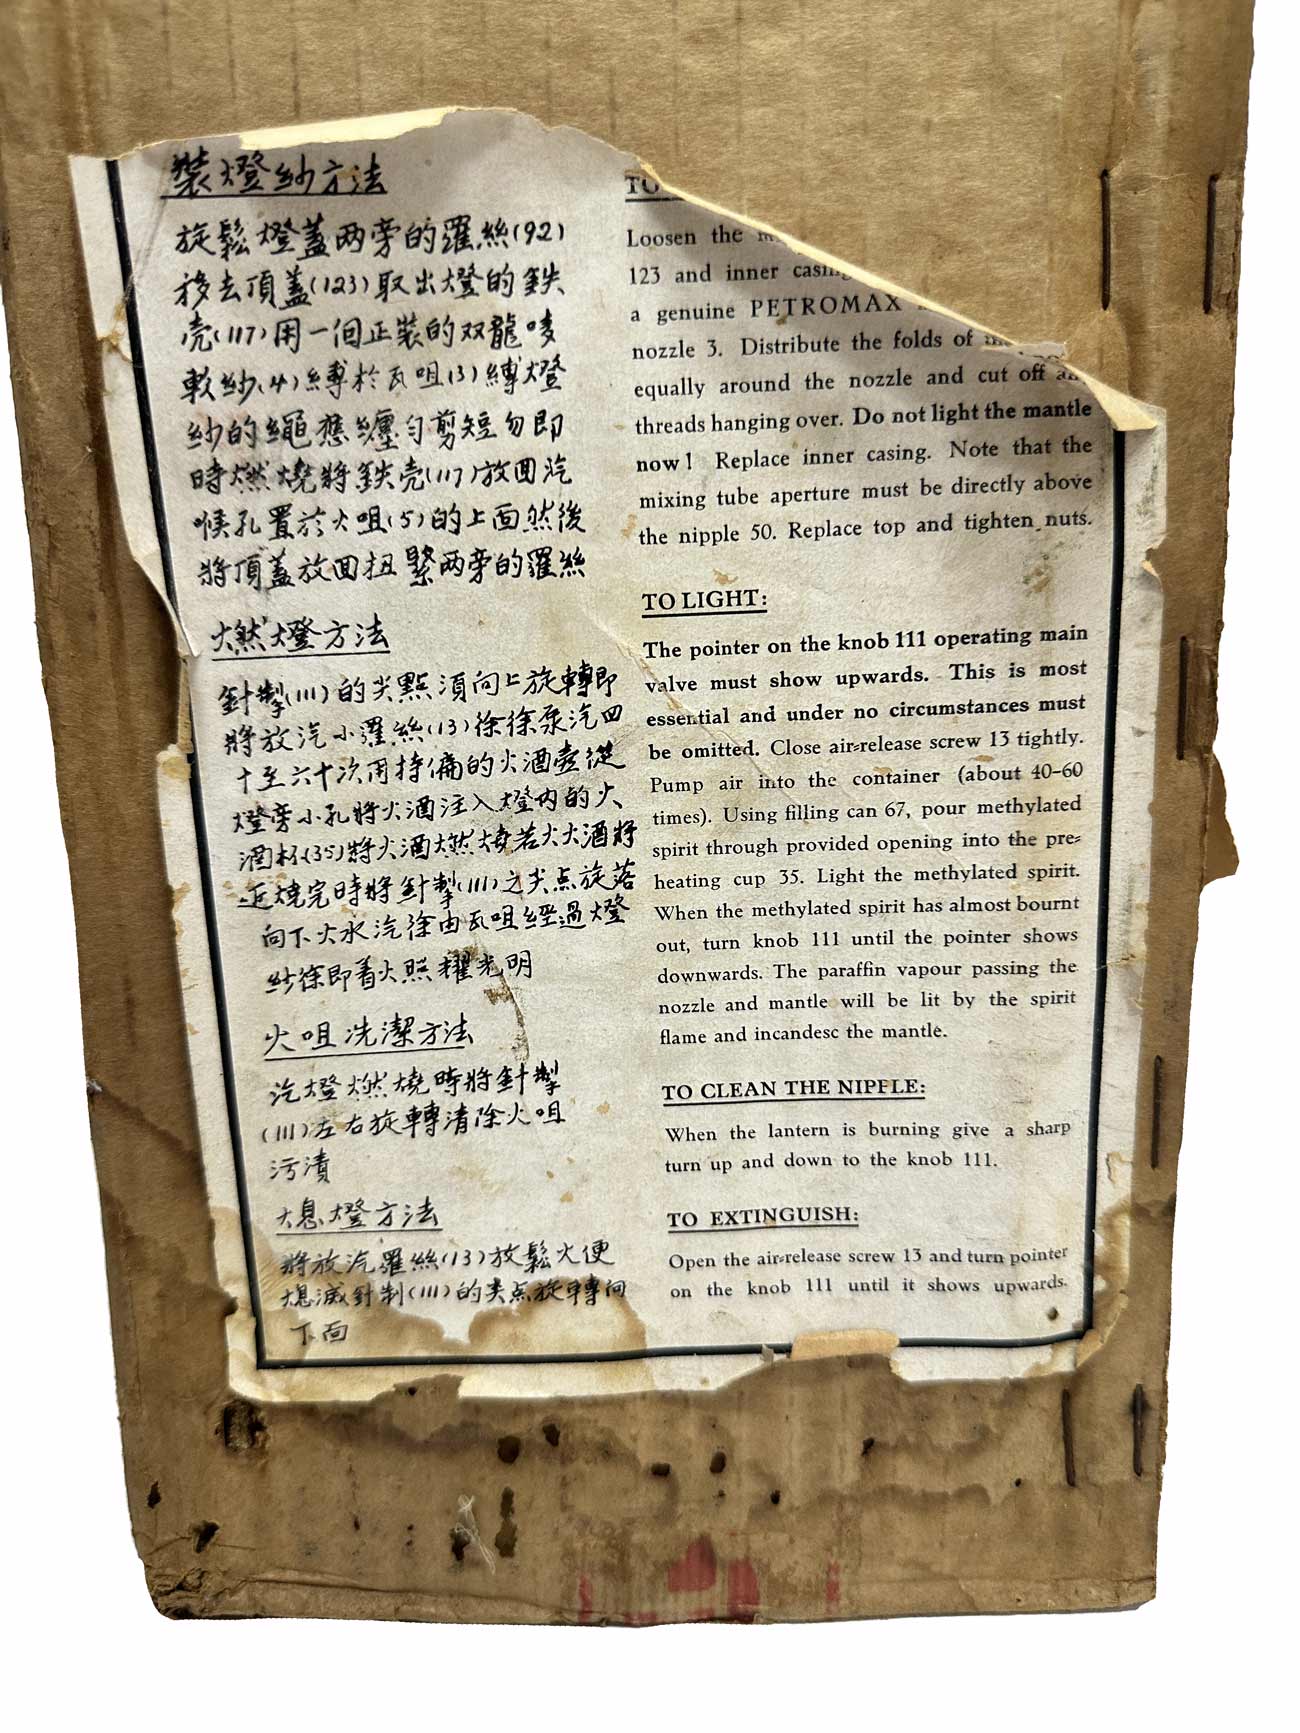 裝燈紗方法
旋鬆燈蓋両旁的羅絲(92)
移去頂蓋(123)取出燈的鉄
壳(117)用一個正裝的双龍唛
軟紗(4)縛於瓦咀(3)縛燈
紗的繩應纏勻剪短勿即
時燃燒將鉄壳(117)放回汽
喉孔置於火咀(5)的上面然後
將頂蓋放回扭緊両旁的羅絲
燃燈方法
針掣(111)的尖點須向上旋轉即
將放汽小羅絲(13)徐徐泵汽四
十至六十次用持偹的火酒壺從
燈旁小孔將火酒注入燈内的火
酒杯(35)將火酒燃燒若火火酒將
近燒完時將針掣(111)之尖点旋落
向下火水汽徐由瓦咀經過燈
紗徐即着火照耀光明
火咀洗潔方法
汽燈燃燒時將針掣
(111)左右旋轉清除火咀
污漬
熄燈方法
將放汽羅絲(13)放鬆火便
熄滅針制(111)的尖点旋轉向
下面
TO
Loosen the
123 and inner casing
a genuine PETROMAX
nozzle 3. Distribute the folds of
equally around the nozzle and cut off any
threads hanging over. Do not light the mantle
now! Replace inner casing. Note that the
mixing tube aperture must be directly above
the nipple 50. Replace top and tighten nuts.
TO LIGHT:
The pointer on the knob 111 operating main
valve must show upwards. This is most
essential and under no circumstances must
be omitted. Close air-release screw 13 tightly.
Pump air into the container (about 40-60
times). Using filling can 67, pour methylated
spirit through provided opening into the pre-
heating cup 35. Light the methylated spirit.
When the methylated spirit has almost bournt
out, turn knob 111 until the pointer shows
downwards. The paraffin vapour passing the
nozzle and mantle will be lit by the spirit
flame and incandesc the mantle.
TO CLEAN THE NIPFLE:
When the lantern is burning give a sharp
turn up and down to the knob 111.
TO EXTINGUISH:
Open the air-release screw 13 and turn pointer
on the knob 111 until it shows upwards.